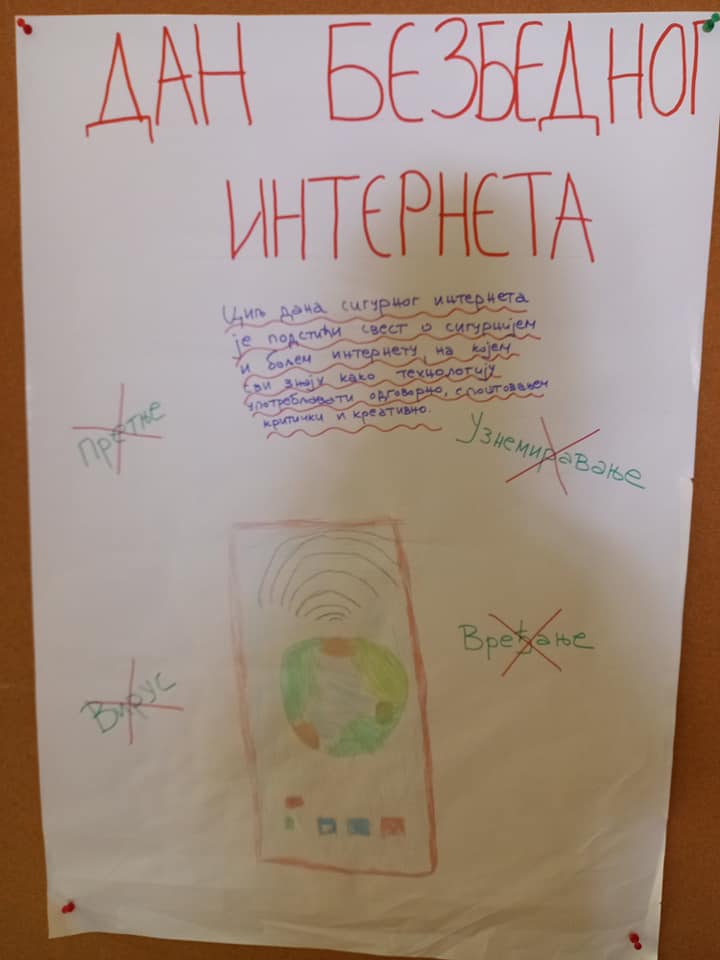 ДАН БЕЗБЕДНОГ
ИНТЕРНЕТА
Циљ дана сигурног интернета
је подстићи свест о сигурнијем
и бољем интернету, на којем
сви знају како технологију
употребљавати одговорно, с поштовањем
критички и креативно.
Претње
Узнемиравање
Вређање
Вирус